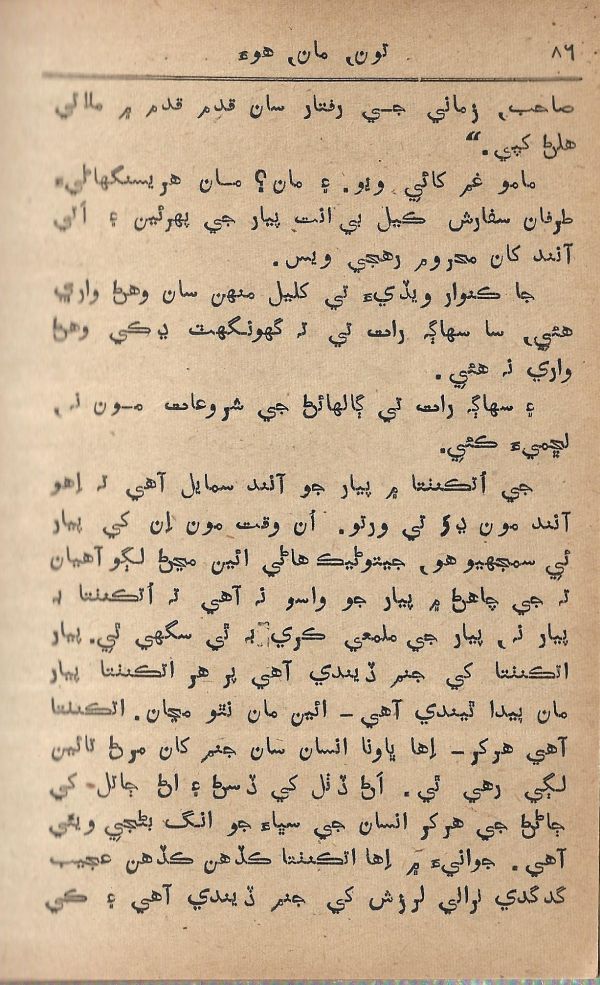 ٨٦ تون، مان، هوءَ
صاحب، زماني جي رفتار سان قدم قدم ۾ ملائي
هلڻ کپي.“
مامو غم کائي ويو. ۽ مان؟ مان هريسنگهاڻيءَ
طرفان سفارش ڪيل بي انت پيار جي پهرئين ۽ اُتي
آنند کان محروم رهجي ويس.
جا ڪنوار ويڏيءَ تي کليل منهن سان وهڻ واري
هئي، سا سهاڳ رات تي نہ گهونگهٽ ڍڪي وهڻ
واري نہ هئي.
۽ سهاڳ رات تي ڳالهائڻ جي شروعات مون نہ،
لڇميءَ ڪئي.
جي اُتڪنٺتا ۾ پيار جو آنند سمايل آهي تہ اِهو
آنند مون ڍؤ تي ورتو. اُن وقت مون اِن کي پيار
ئي سمجهيو هو، جيتوڻيڪ هاڻي ائين مڃڻ لڳو آهيان
تہ جي چاهڻ ۾ پيار جو واسو نہ آهي تہ اُتڪنٺتا بہ
پيار نہ، پيار جي ملمعي ڪري بہ ٿي سگهي ٿي. پيار
اتڪنٺتا کي جنم ڏيندي آهي پر هر اتڪنٺتا پيار
مان پيدا ٿيندي آهي ـ ائين مان نٿو مڃان. اتڪنٺتا
آهي هرکر ـ اِها ڀاونا انسان سان جنم کان مرڻ تائين
لڳي رهي ٿي. اَڻ ڏٺل کي ڏسڻ ۽ اڻ ڄاتل کي
ڄاڻڻ جي هرکر انسان جي سڀاءَ جو انگ بڻجي ويئي
آهي. جوانيءَ ۾ اِها اتڪنٺتا ڪڏهن ڪڏهن عجيب
گدگدي نرالي لرزش کي جنم ڏيندي آهي ۽ ڪي